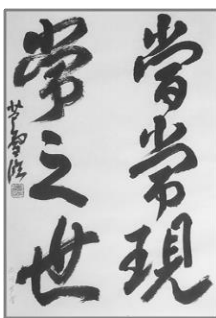 當常現
常之世